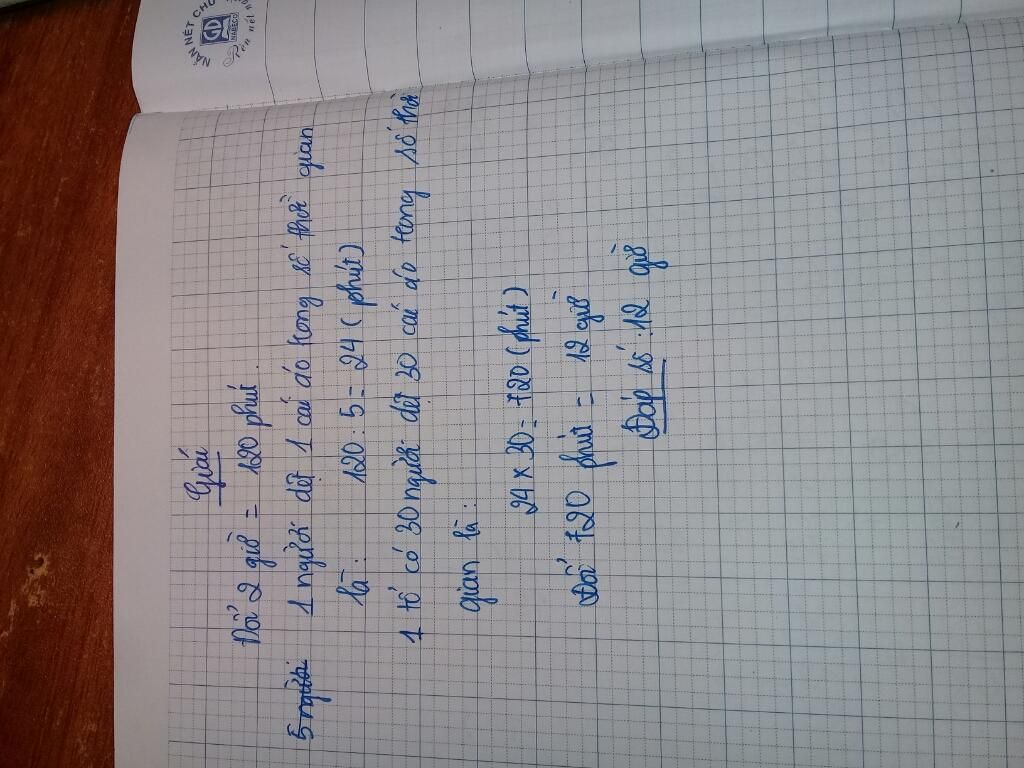 NẮN NÉT CHỮ
GD
HABECO
Rèn nét
Giải
Đổi 2 giờ = 120 phút.
5 người 1 người dệt 1 cái áo trong số thời gian
là: 120 : 5 = 24 ( phút)
1 tổ có 30 người dệt 30 cái áo trong số thời
gian là:
24 x 30 = 720 (phút)
Đổi 720 phút = 12 giờ
Đáp số : 12 giờ